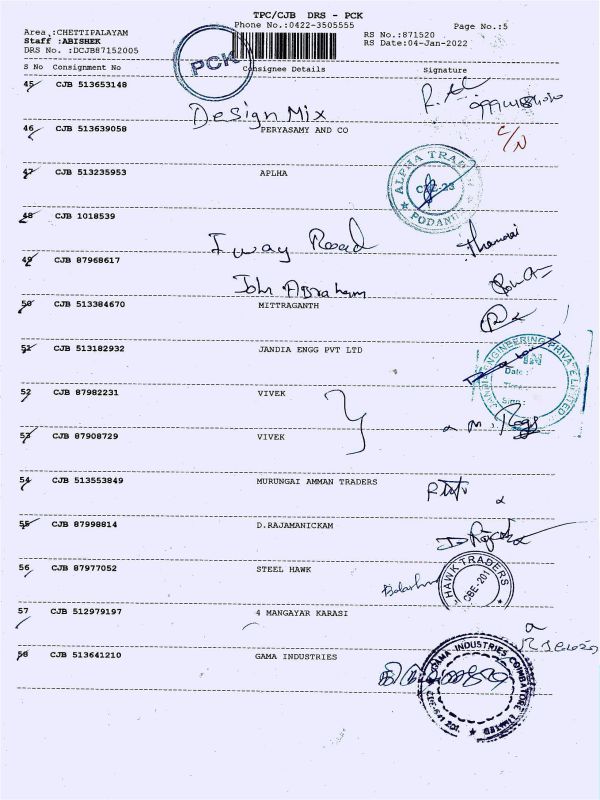 TPC/CJB DRS - PCK
Phone No.:0422-3505555
Page No.:5
Area :CHETTIPALAYAM
Staff :ABISHEK
DRS No. :DCJB87152005
RS No.:871520
RS Date:04-Jan-2022
PCK
S No Consignment No Consignee Details Signature
45 CJB 513653148
Design Mix
46 CJB 513639058 PERYASAMY AND CO
C/N
47 CJB 513235953 APLHA
ALPHA TRAD
CBE-23
PODANUR
48 CJB 1018539
I way Road
49 CJB 87968617
John Abraham
50 CJB 513384670 MITTRAGANTH
51 CJB 513182932 JANDIA ENGG PVT LTD
ENGINEERING PRIVATE LIMITED
Date :
Time :
Sign :
52 CJB 87982231 VIVEK
53 CJB 87908729 VIVEK
54 CJB 513553849 MURUNGAI AMMAN TRADERS
55 CJB 87998814 D.RAJAMANICKAM
56 CJB 87977052 STEEL HAWK
HAWK TRADERS
CBE-201
57 CJB 512979197 4 MANGAYAR KARASI
58 CJB 513641210 GAMA INDUSTRIES
GAMA INDUSTRIES COIMBATORE LIMITED